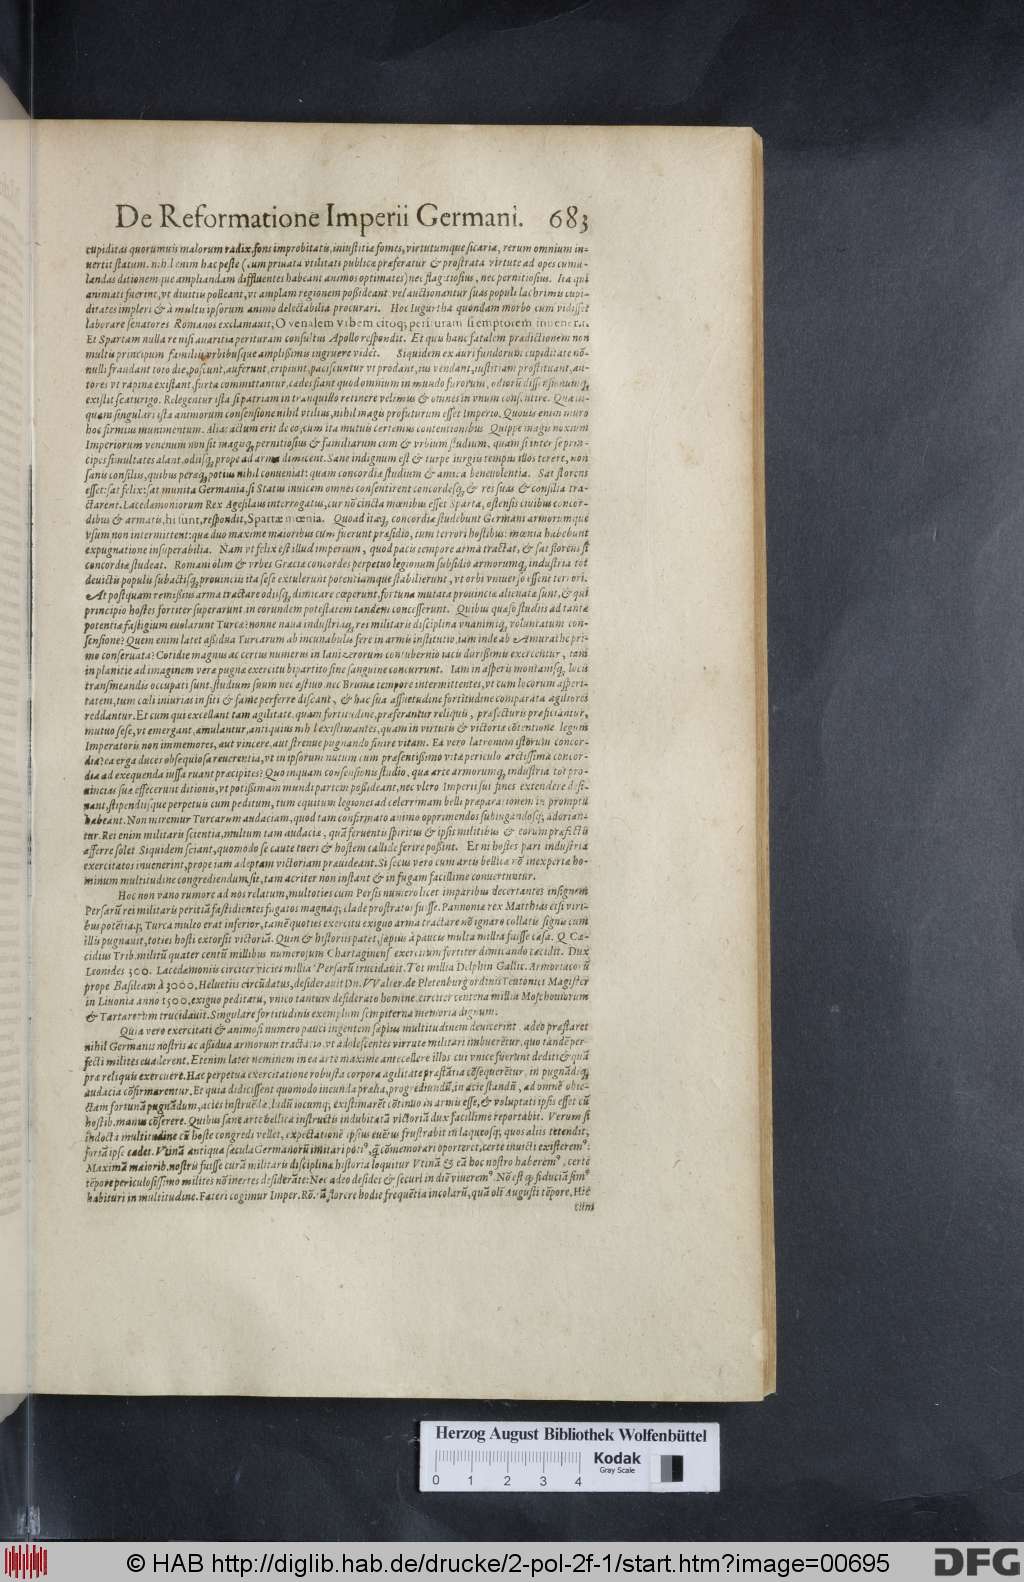 De Reformatione Imperii Germani. 683
cupiditas quorumuis malorum radix, fons improbitatis, iniustitiæ fomes, virtutumque sicaria, rerum omnium in-
uertit statum. nihil enim hac peste (cum priuata vtilitati publicæ præferatur & prostrata virtute ad opes cumu-
landas ditionemque ampliandam diffluentes habeant animos optimates) nec flagitiosius, nec pernitiosius. Ita qui
animati fuerint, vt diuitiis polleant, vt amplam regionem possideant, vel auctionantur suas populi lachrimis cupi-
ditates impleri & à multis ipsorum animo delectabilia procurari. Hoc Iugurtha quondam morbo cum vidisset
laborare senatores Romanos exclamauit, O venalem vrbem citoq; perituram si emptorem inuenerit.
Et Spartam nulla re nisi auaritia perituram consultus Apollo respondit. Et quis hanc fatalem prædictionem non
multis principum familiis vrbibusque amplissimis ingruere videt. Siquidem ex auri fundorum cupiditate nō-
nulli fraudant toto die, poscunt, auferunt, eripiunt, paciscuntur vt prodant, ius vendant, iustitiam prostituant, au-
tores vt rapinæ existant, furta committantur, cædes fiant quod omnium in mundo furorum, odiorū dissensionumq;
existit scaturigo. Relegentur ista si patriam in tranquillo retinere velimus & omnes in vnum consentire. Quan-
quam singularis ista animorum consensione nihil vtilius, nihil magis profuturum esset Imperio. Quouis enim muro
hoc firmius munimentum. Aliàs actum erit de eo, cum ita mutuis certemus contentionibus Quippe magis noxium
Imperiorum venenum non sit magisq; pernitiosius & familiarum cum & vrbium studium, quam si inter se prin-
cipes simultates alant, odiisq; prope ad arma dimicent. Sane indignum est & turpe iurgiis tempus illos terere, non
sanis consiliis, quibus peræq; potius nihil conueniat: quam concordiæ studium & amica beneuolentia. Sat florens
esset: sat felix: sat munita Germania, si Status inuicem omnes consentirent concordesq; & res suas & consilia tra-
ctarent. Lacedæmoniorum Rex Agesilaus interrogatus, cur nō cincta mœnibus esset Sparta, ostensis ciuibus concor-
dibus & armatis, hi sunt, respondit, Spartæ mœnia. Quoad itaq; concordiæ studebunt Germani armorumque
vsum non intermittent: quæ duo maxime maioribus cum fuerunt præsidio, tum terrori hostibus: mœnia habebunt
expugnatione insuperabilia. Nam vt felix est illud imperium, quod pacis tempore arma tractat, & sat florens si
concordiæ studeat. Romani olim & vrbes Græciæ concordes perpetuo legionum subsidio armorumq; industria tot
deuictis populis subactisq; prouinciis ita sese extulerunt potentiamque stabilierunt, vt orbi vniuerso essent terrori.
At postquam remissius arma tractare odiisq; dimicare cœperunt, fortuna mutata prouinciæ alienatæ sunt, & qui
principio hostes fortiter superarunt in eorundem potestatem tandem concesserunt. Quibus quæso studiis ad tantæ
potentiæ fastigium euolarunt Turcæ? nonne naua industriaq; rei militaris disciplina vnanimiq; voluntatum con-
sensione? Quem enim latet assidua Turcarum ab incunabulis fere in armis institutio, iam inde ab Amurathe pri-
mo conseruata? Cotidie magnus ac certus numerus in Ianizerorum contubernio iactis durissimis exercentur, tam
in planitie ad imaginem veræ pugnæ exercitu bipartito sine sanguine concurrunt. Iam in asperis montanisq; locis
transmeandis occupati sunt, studium suum nec æstiuo nec Brumæ tempore intermittentes, vt cum locorum asperi-
tatem, tum cœli iniurias in siti & fame perferre discant, & hac sua assuetudine fortitudine comparata agiliores
reddantur. Et cum qui excellant tam agilitate, quam fortitudine, præferantur reliquis, præfecturis præficiantur,
mutuo sese, vt emergant, æmulantur, antiquius nihil existimantes, quam in virtutis & victoriæ cōtentione legum
Imperatoris non immemores, aut vincere, aut strenue pugnando finire vitam. Ea vero latronum istorum concor-
dia: ea erga duces obsequiosa reuerentia, vt in ipsorum nutum cum præsentissimo vitæ periculo arctissima concor-
dia ad exequenda iussa ruant præcipites? Quo inquam consensionis studio, qua arte armorumq; industria tot pro-
uincias suæ effecerunt ditionis, vt potissimam mundi partem possideant, nec vltro Imperii sui fines extendere desi-
nant, stipendiisque perpetuis cum peditum, tum equitum legiones ad celerrimam belli præparationem in promptu
habeant. Non miremur Turcarum audaciam, quod tam confirmato animo opprimendos subiugandosq; adorian-
tur. Rei enim militaris scientia, multum tam audaciæ, quā feruentis spiritus & ipsis militibus & eorum præfectis
afferre solet Siquidem sciant, quomodo se caute tueri & hostem callide ferire possint. Et ni hostes pari industria
exercitatos inuenerint, prope iam adeptam victoriam præuideant. Si secus vero cum artis bellicæ nō inexperta ho-
minum multitudine congrediendum sit, tam acriter non instant & in fugam facillime conuertuntur.
Hoc non vano rumore ad nos relatum, multoties cum Persis numero licet imparibus decertantes insignem
Persarū rei militaris peritiā fastidientes fugatos magnaq; clade prostratos fuisse. Pannoniæ rex Matthias etsi viri-
bus potētiaq; Turca multo erat inferior, tamē quoties exercitu exiguo arma tractare nō ignaro collatis signis cum
illis pugnauit, toties hosti extorsit victoriā. Quin & historiis patet, sæpius à paucis multa millia fuisse cæsa. Q. Cæ-
cidius Trib. militū quater centū millibus numerosum Chartaginens. exercitum fortiter dimicando cecidit. Dux
Leonides 300. Lacedæmoniis circiter vicies millia Persarū trucidauit. Tot millia Delphin Gallic. Armoriacorū
prope Basileam à 3000. Helvetiis circūdatus, desiderauit Dn. VValter. de Pletenburg ordinis Teutonici Magister
in Liuonia anno 1500. exiguo peditatu, vnico tantum desiderato homine, circiter centena millia Moschouiorum
& Tartarorum trucidauit. Singulare fortitudinis exemplum sempiterna memoria dignum.
Quia vero exercitati & animosi numero pauci ingentem sæpius multitudinem deuicerint, adeo præstaret
nihil Germanis nostris ac assidua armorum tractatio vt adolescentes virtute militari imbuerētur, quo tandē per-
fecti milites euaderent. Etenim latet neminem in ea arte maxime antecellere illos cui vnice fuerunt dediti & quā
præ reliquis exercuere. Hac perpetua exercitatione robusta corpora agilitate præstātia cōsequerētur, in pugnādiq;
audacia cōfirmarentur. Et quia didicissent quomodo ineunda prælia, progrediundū, in acie standū, ad omnē obie-
ctam fortunā pugnādum, acies instruēdæ, ludū iocumq; existimarēt cōtinuo in armis esse, & voluptati ipsis esset cū
hostib. manus cōserere. Quibus sane arte bellica instructis indubitatā victoriā dux facillime reportabit. Verum si
indocta multitudine cū hoste congredi vellet, expectatione ipsius euētus frustrabit in laqueosq; quos aliis tetendit,
forsā ipse cadet. Vtinā antiqua sæcula Germanorū imitari poti⁹, ꝙ̄ cōmemorari oporteret, certe inuicti existerem⁹:
Maximā maiorib. nostris fuisse curā militaris disciplinæ historia loquitur Vtinā & eā hoc nostro haberem⁹, certe
tēpore periculosissimo milites nō inertes desiderāte: Nec adeo desides & securi in diē viuerem⁹. Nō est ꝙ fiduciā sim⁹
habituri in multitudine. Fateri cogimur Imper. Rō. nā florere hodie frequētia incolarū, quā oli Augusti tēpore. Hic
enim
Herzog August Bibliothek Wolfenbüttel
0 1 2 3 4
Kodak
Gray Scale
© HAB http://diglib.hab.de/drucke/2-pol-2f-1/start.htm?image=00695
DFG